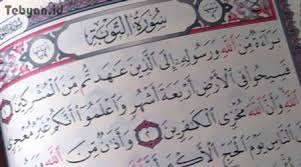 Tebyan.id
سُورَةُ التَّوْبَةِ
بَرَاءَةٌ مِّنَ اللَّهِ وَرَسُولِهِ إِلَى الَّذِينَ عَاهَدتُّم مِّنَ الْمُشْرِكِينَ ١
فَسِيحُوا فِي الْأَرْضِ أَرْبَعَةَ أَشْهُرٍ وَاعْلَمُوا أَنَّكُمْ غَيْرُ مُعْجِزِي
اللَّهِ وَأَنَّ اللَّهَ مُخْزِي الْكَافِرِينَ ٢ وَأَذَانٌ مِّنَ اللَّهِ
النَّاسِ يَوْمَ الْحَجِّ الْأَكْبَرِ